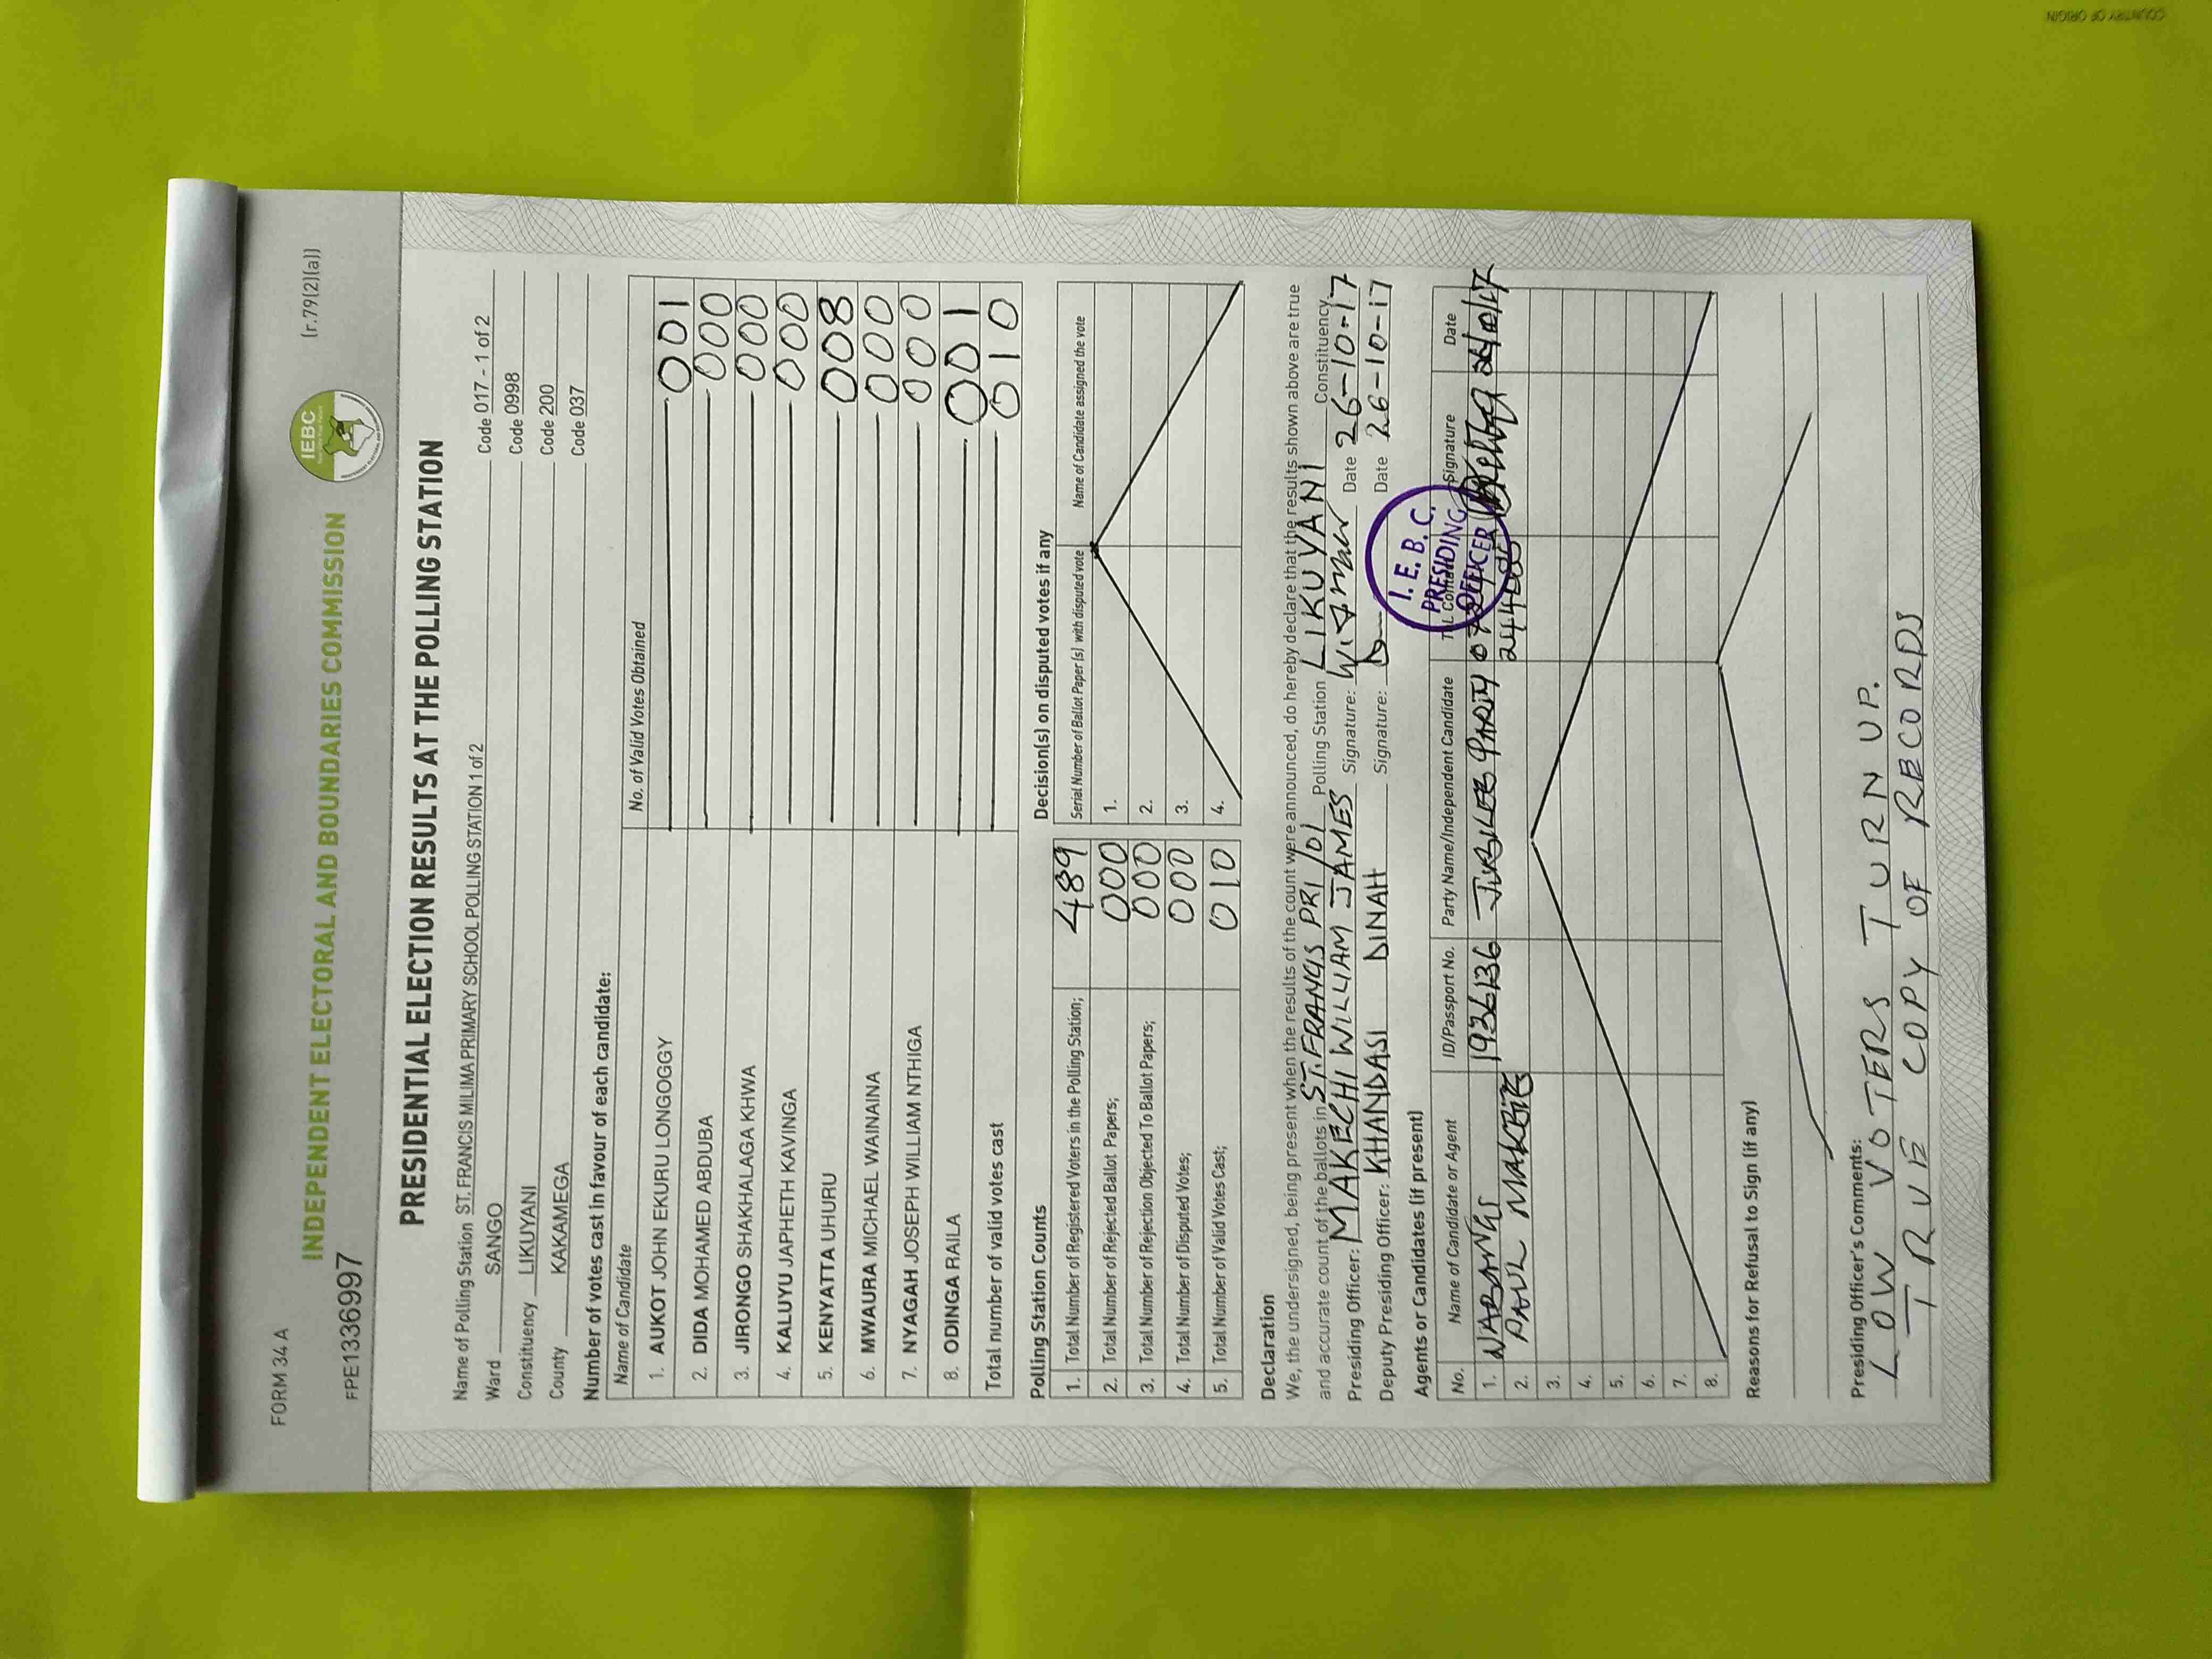 COUNTRY OF ORIGIN
FORM 34 A
(r.79(2)(a))
IEBC
INDEPENDENT ELECTORAL AND BOUNDARIES COMMISSION
FPE1336997
PRESIDENTIAL ELECTION RESULTS AT THE POLLING STATION
Name of Polling Station ST. FRANCIS MILIMA PRIMARY SCHOOL POLLING STATION 1 of 2 Code 017 - 1 of 2
Ward SANGO Code 0998
Constituency LIKUYANI Code 200
County KAKAMEGA Code 037
Number of votes cast in favour of each candidate:
Name of Candidate No. of Valid Votes Obtained
1. AUKOT JOHN EKURU LONGOGGY 001
2. DIDA MOHAMED ABDUBA 000
3. JIRONGO SHAKHALAGA KHWA 000
4. KALUYU JAPHETH KAVINGA 000
5. KENYATTA UHURU 008
6. MWAURA MICHAEL WAINAINA 000
7. NYAGAH JOSEPH WILLIAM NTHIGA 000
8. ODINGA RAILA 001
Total number of valid votes cast 010
Polling Station Counts
1. Total Number of Registered Voters in the Polling Station; 489
2. Total Number of Rejected Ballot Papers; 000
3. Total Number of Rejection Objected To Ballot Papers; 000
4. Total Number of Disputed Votes; 000
5. Total Number of Valid Votes Cast; 010
Decision(s) on disputed votes if any
Serial Number of Ballot Paper (s) with disputed vote Name of Candidate assigned the vote
1.
2.
3.
4.
Declaration
We, the undersigned, being present when the results of the count were announced, do hereby declare that the results shown above are true
and accurate count of the ballots in ST. FRANCIS PRI /01 Polling Station LIKUYANI Constituency.
Presiding Officer: MAKECHI WILLIAM JAMES Signature: Date 26-10-17
Deputy Presiding Officer: KHANDASI DINAH Signature: Date 26-10-17
I. E. B. C.
PRESIDING
OFFICER
Agents or Candidates (if present)
No. Name of Candidate or Agent ID/Passport No. Party Name/Independent Candidate Signature Date
1. JUBILEE PARTY
2. PAUL
3.
4.
5.
6.
7.
8.
Reasons for Refusal to Sign (if any)
Presiding Officer's Comments:
LOW VOTERS TURN UP.
TRUE COPY OF RECORDS